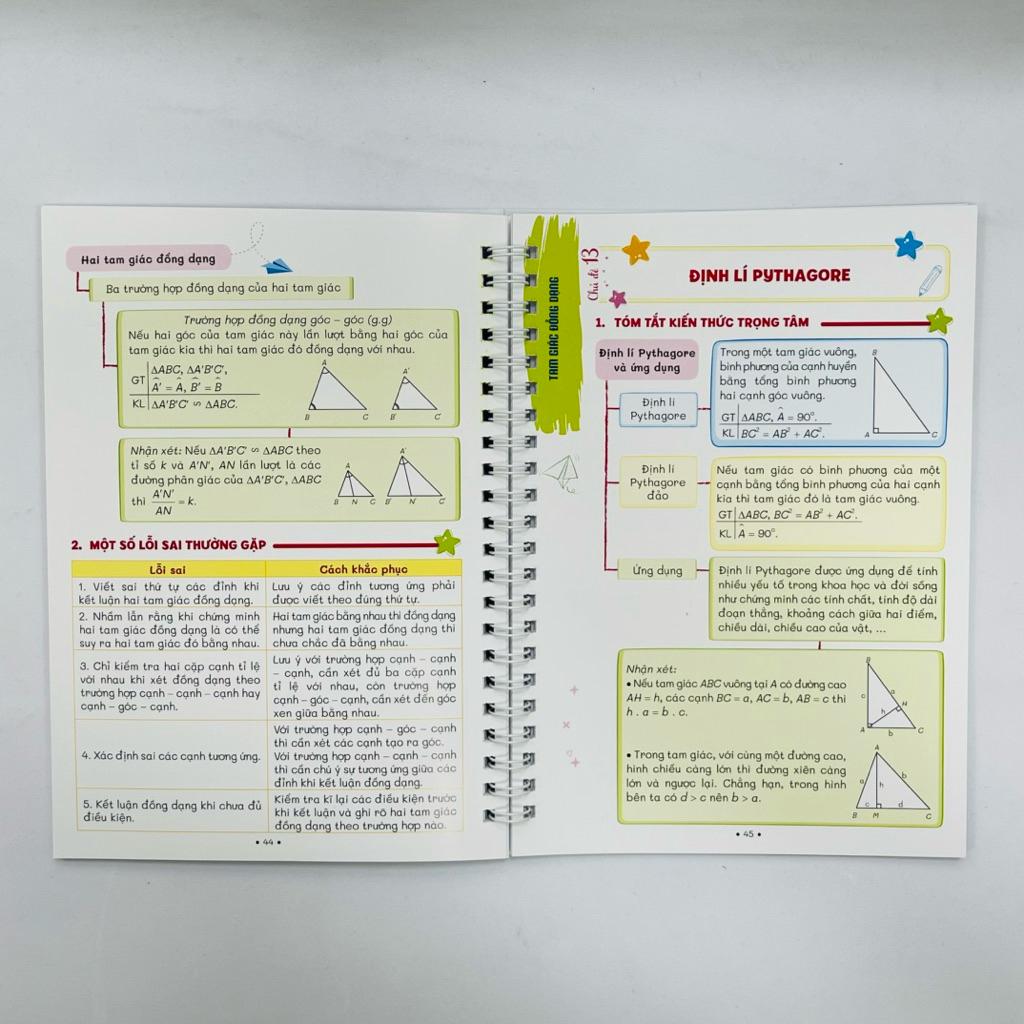 Hai tam giác đồng dạng
Ba trường hợp đồng dạng của hai tam giác
Trường hợp đồng dạng góc – góc (g.g)
Nếu hai góc của tam giác này lần lượt bằng hai góc của
tam giác kia thì hai tam giác đó đồng dạng với nhau.
GT ΔABC, ΔA'B'C',
Â' = Â, B̂' = B̂
KL ΔA'B'C' ∽ ΔABC.
A
B C
A'
B' C'
Nhận xét: Nếu ΔA'B'C' ∽ ΔABC theo
tỉ số k và A'N', AN lần lượt là các
đường phân giác của ΔA'B'C', ΔABC
thì A'N'/AN = k.
A
B N C
A'
B' N' C'
2. MỘT SỐ LỖI SAI THƯỜNG GẶP
Lỗi sai
Cách khắc phục
1. Viết sai thứ tự các đỉnh khi
kết luận hai tam giác đồng dạng.
Lưu ý các đỉnh tương ứng phải
được viết theo đúng thứ tự.
2. Nhầm lẫn rằng khi chứng minh
hai tam giác đồng dạng là có thể
suy ra hai tam giác đó bằng nhau.
Hai tam giác bằng nhau thì đồng dạng
nhưng hai tam giác đồng dạng thì
chưa chắc đã bằng nhau.
3. Chỉ kiểm tra hai cặp cạnh tỉ lệ
với nhau khi xét đồng dạng theo
trường hợp cạnh – cạnh – cạnh hay
cạnh – góc – cạnh.
Lưu ý với trường hợp cạnh – cạnh
– cạnh, cần xét đủ ba cặp cạnh
tỉ lệ với nhau, còn trường hợp
cạnh – góc – cạnh, cần xét đến góc
xen giữa bằng nhau.
4. Xác định sai các cạnh tương ứng.
Với trường hợp cạnh – góc – cạnh
thì cần xét các cạnh tạo ra góc.
Với trường hợp cạnh – cạnh – cạnh
thì cần chú ý sự tương ứng giữa các
đỉnh khi kết luận đồng dạng.
5. Kết luận đồng dạng khi chưa đủ
điều kiện.
Kiểm tra kĩ lại các điều kiện trước
khi kết luận và ghi rõ hai tam giác
đồng dạng theo trường hợp nào.
• 44 •
TAM GIÁC ĐỒNG DẠNG
Chủ đề 13
ĐỊNH LÍ PYTHAGORE
1. TÓM TẮT KIẾN THỨC TRỌNG TÂM
Định lí Pythagore
và ứng dụng
Định lí
Pythagore
Trong một tam giác vuông,
bình phương của cạnh huyền
bằng tổng bình phương
hai cạnh góc vuông.
GT ΔABC, Â = 90°.
KL BC² = AB² + AC².
B
A C
Định lí
Pythagore
đảo
Nếu tam giác có bình phương của một
cạnh bằng tổng bình phương của hai cạnh
kia thì tam giác đó là tam giác vuông.
GT ΔABC, BC² = AB² + AC².
KL Â = 90°.
Ứng dụng
Định lí Pythagore được ứng dụng để tính
nhiều yếu tố trong khoa học và đời sống
như chứng minh các tính chất, tính độ dài
đoạn thẳng, khoảng cách giữa hai điểm,
chiều dài, chiều cao của vật, ...
Nhận xét:
• Nếu tam giác ABC vuông tại A có đường cao
AH = h, các cạnh BC = a, AC = b, AB = c thì
h . a = b . c.
B
c a
h H
A b C
• Trong tam giác, với cùng một đường cao,
hình chiếu càng lớn thì đường xiên càng
lớn và ngược lại. Chẳng hạn, trong hình
bên ta có d > c nên b > a.
A
a h b
c d
B M C
• 45 •